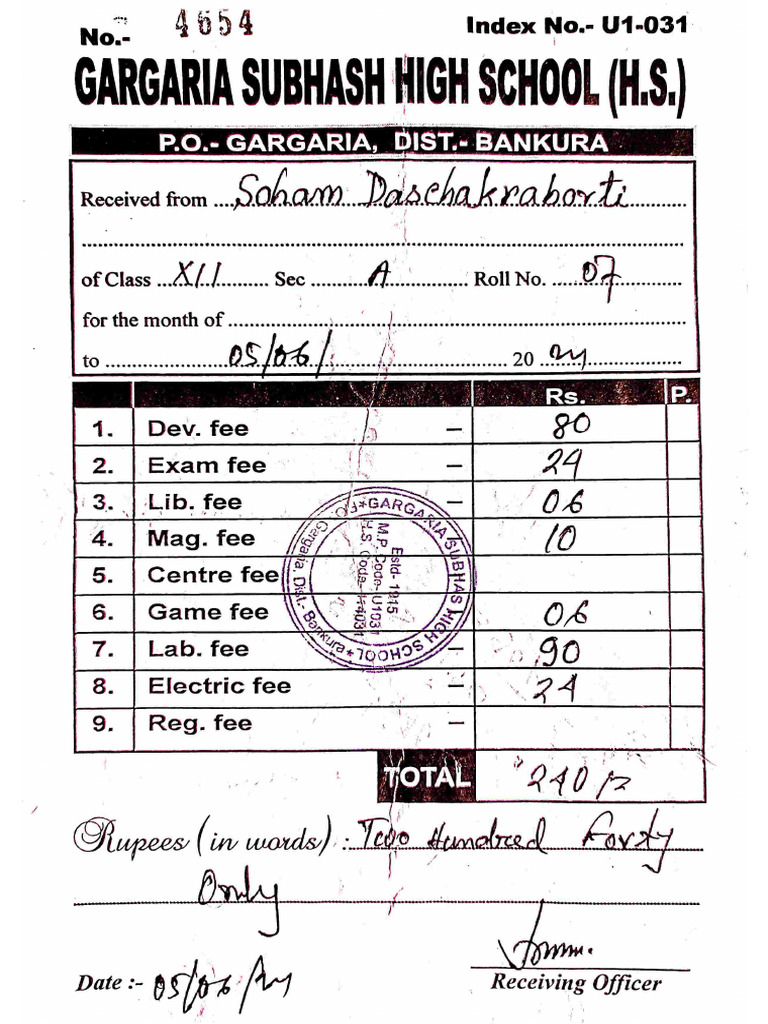 No.- 4654 Index No.- U1-031
GARGARIA SUBHASH HIGH SCHOOL (H.S.)
P.O.- GARGARIA, DIST.- BANKURA
Received from ....Soham Daschakraborti....
of Class ...XII... Sec ...A... Roll No. ...07...
for the month of ...
to ...05/06/... 20 ...24...
Rs. P.
1. Dev. fee – 80
2. Exam fee – 24
3. Lib. fee – 06
4. Mag. fee – 10
5. Centre fee
6. Game fee 06
7. Lab. fee – 90
8. Electric fee – 24
9. Reg. fee –
GARGARIA SUBHAS HIGH SCHOOL * P.O. Gargaria, Dist.- Bankura *
Estd- 1915
M.P. Code- U1031
H.S. Code-
TOTAL 240
Rupees (in words) : Two Hundred Forty
Only
Date :- 05/06/24 Receiving Officer